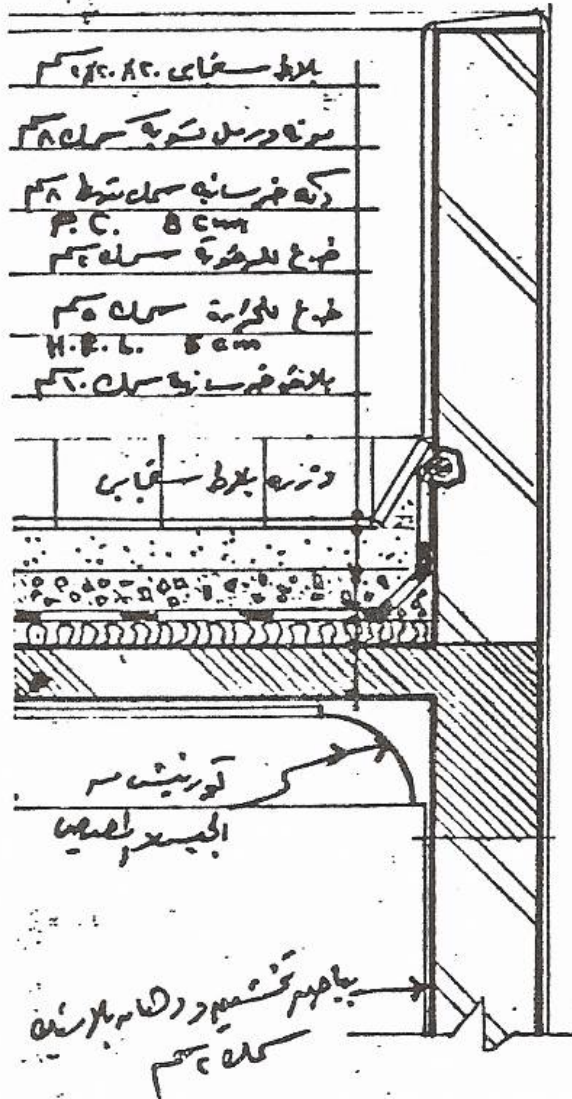 بلاط سنجابى ٢٠×٢٠×٢ سم
مونة ورمل تسوية سمك ٨ سم
دكة خرسانية سمك متوسط ٨ سم
P. C. 8 cm
طبقة للرطوبة سمك ٢ سم
طبقة للحرارة سمك ٥ سم
H. R. L. 5 cm
بلاطة خرسانية سمك ١٠ سم
وزرة بلاط سنجابى
كورنيش من
الجبس المصيص
بياض تخشين ودهان بلاستيك
سمك ٢ سم